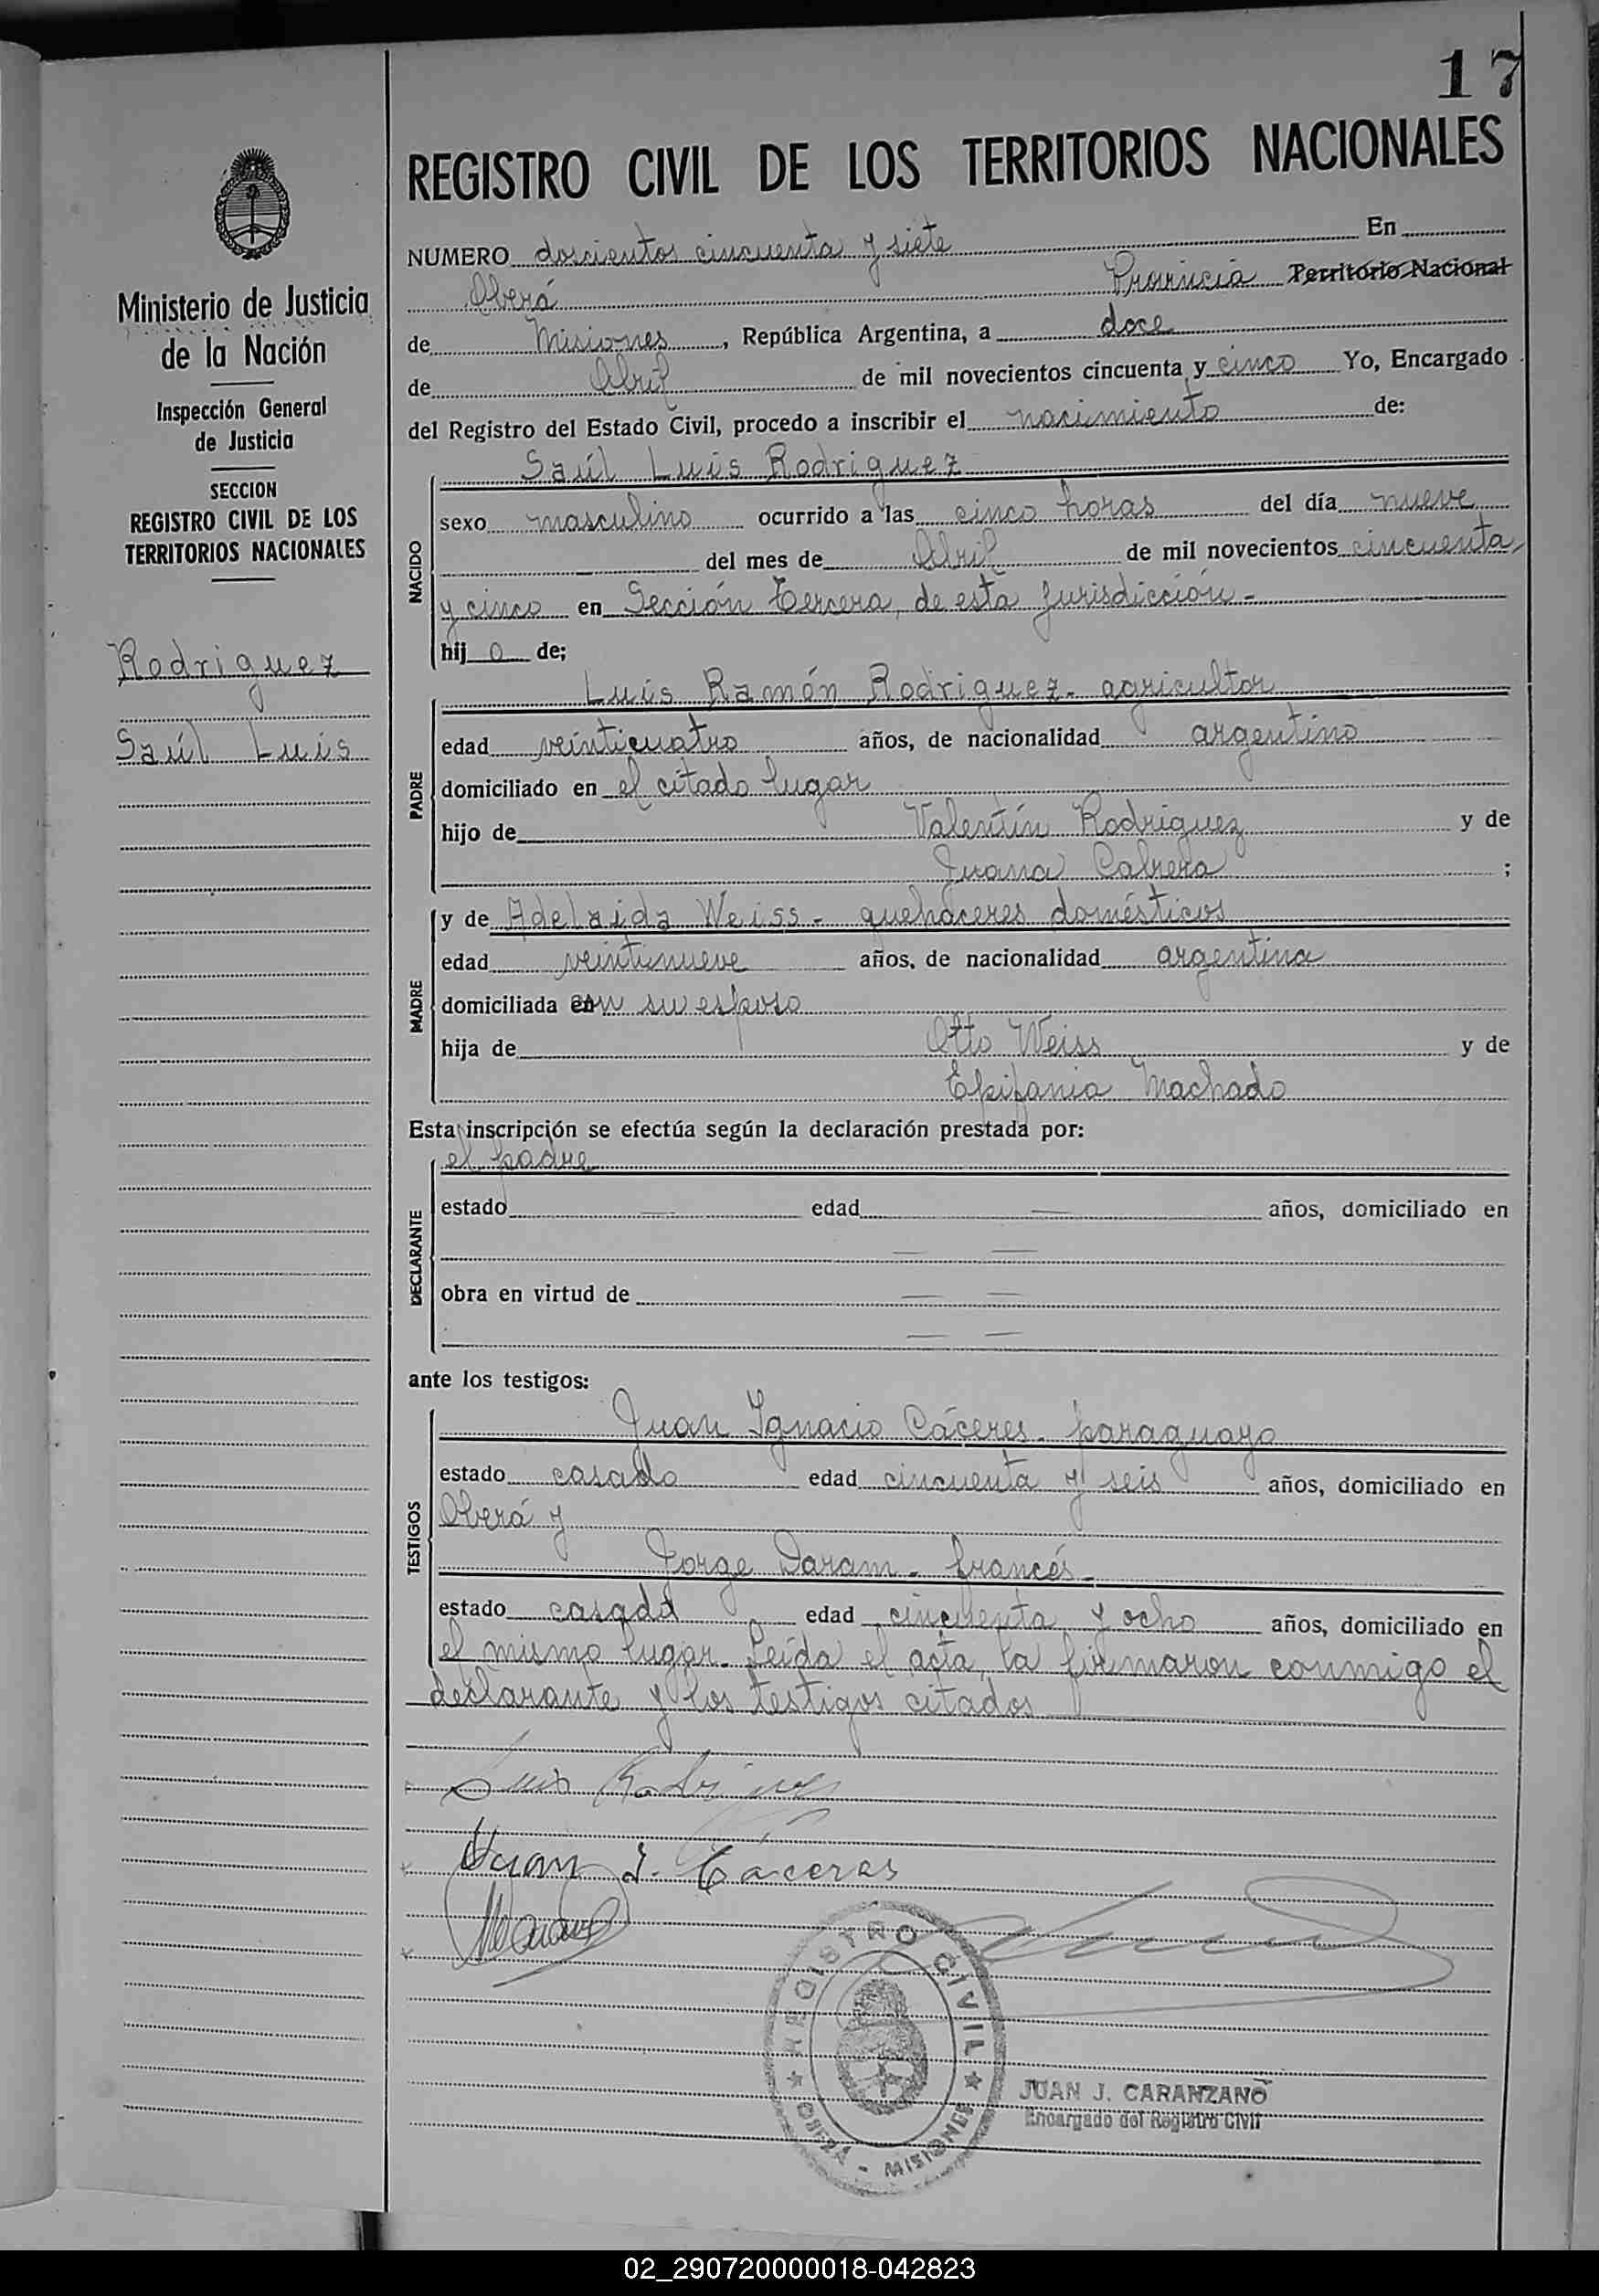 17
REGISTRO CIVIL DE LOS TERRITORIOS NACIONALES
Ministerio de Justicia
de la Nación
Inspección General
de Justicia
SECCION
REGISTRO CIVIL DE LOS
TERRITORIOS NACIONALES
Rodriguez
Saúl Luis
NUMERO doscientos cincuenta y siete En
Oberá Provincia Territorio Nacional
de Misiones, República Argentina, a doce
de Abril de mil novecientos cincuenta y cinco Yo, Encargado
del Registro del Estado Civil, procedo a inscribir el nacimiento de:
NACIDO
Saúl Luis Rodriguez
sexo masculino ocurrido a las cinco horas del día nueve
del mes de Abril de mil novecientos cincuenta
y cinco en Sección Tercera, de esta jurisdicción-
hij o de;
PADRE
Luis Ramón Rodriguez- agricultor
edad veinticuatro años, de nacionalidad argentino
domiciliado en el citado lugar
hijo de Valentín Rodriguez y de
Juana Cabrera ;
MADRE
y de Adelaida Weiss- quehaceres domésticos
edad veintinueve años, de nacionalidad argentina
domiciliada con su esposo
hija de Otto Weiss y de
Epifania Machado
Esta inscripción se efectúa según la declaración prestada por:
DECLARANTE
el padre
estado — edad — años, domiciliado en
— —
obra en virtud de — —
— —
ante los testigos:
TESTIGOS
Juan Ignacio Cáceres- paraguayo
estado casado edad cincuenta y seis años, domiciliado en
Oberá y
Jorge Daram- francés-
estado casado edad cincuenta y ocho años, domiciliado en
el mismo lugar- Leída el acta, la firmaron conmigo el
declarante y los testigos citados
Luis Rodriguez
Juan I. Cáceres
REGISTRO CIVIL
OBERÁ - MISIONES
JUAN J. CARANZANO
Encargado del Registro Civil
02_290720000018-042823